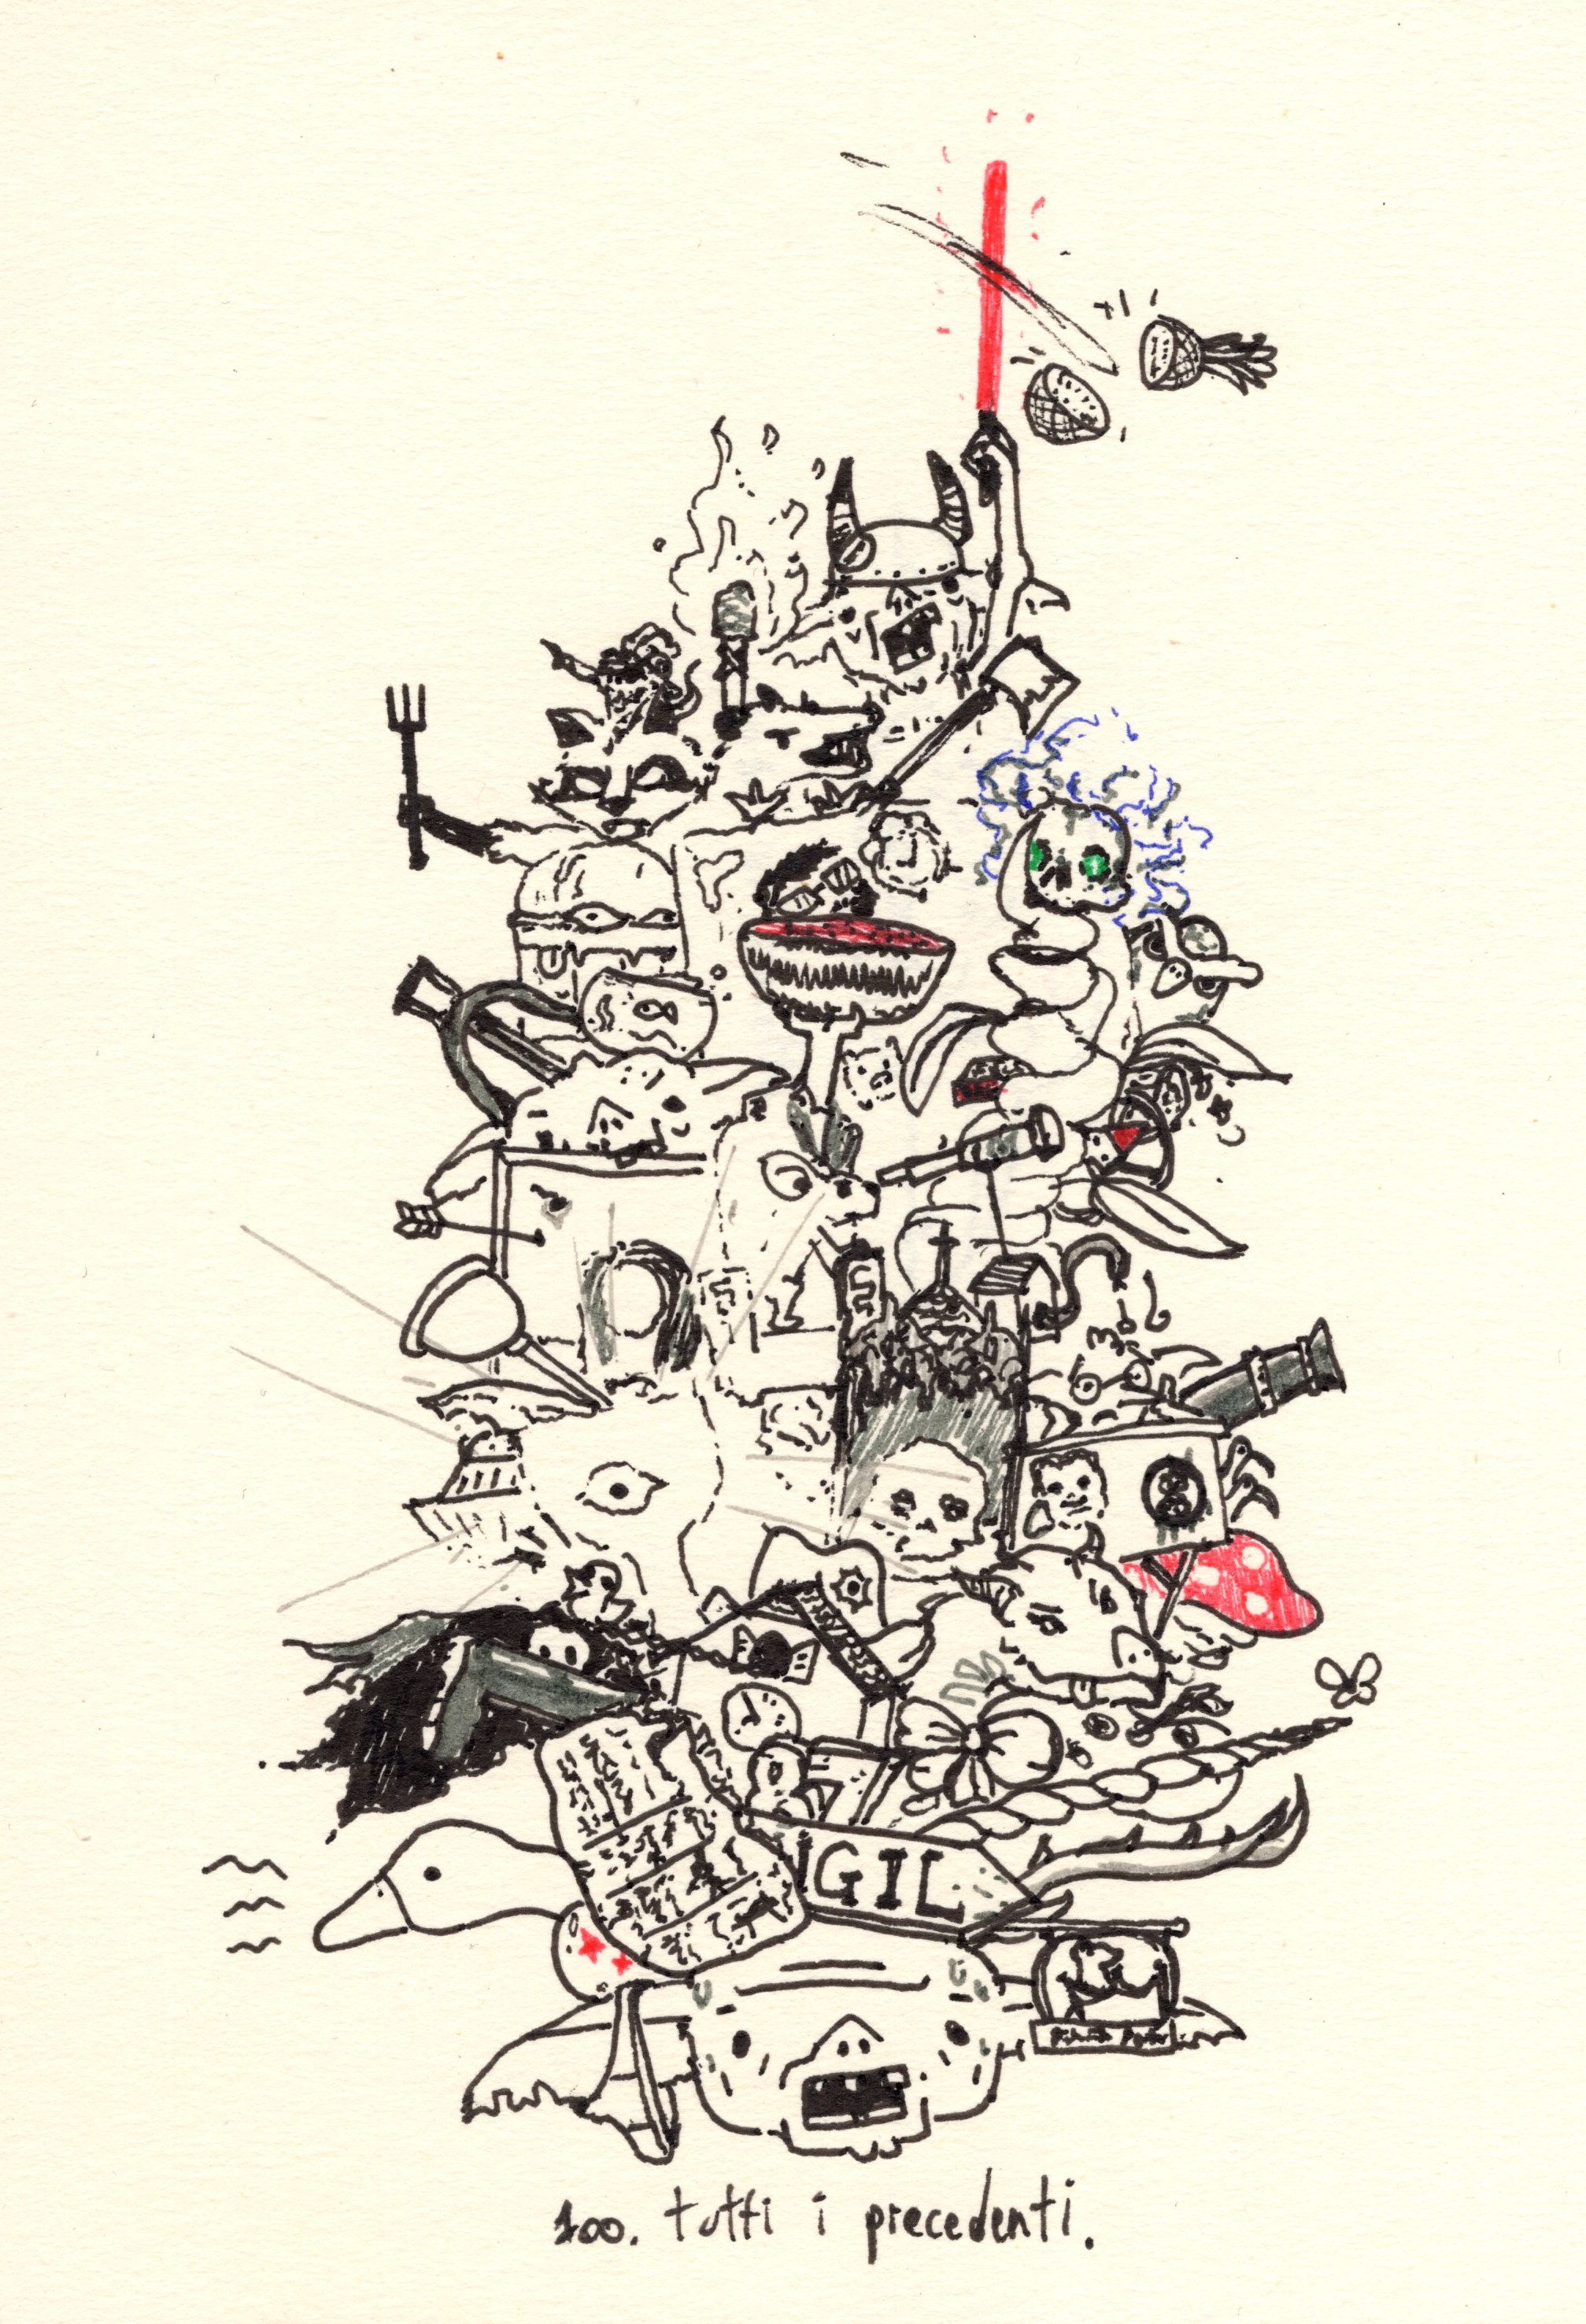 GIL
100. tutti i precedenti.